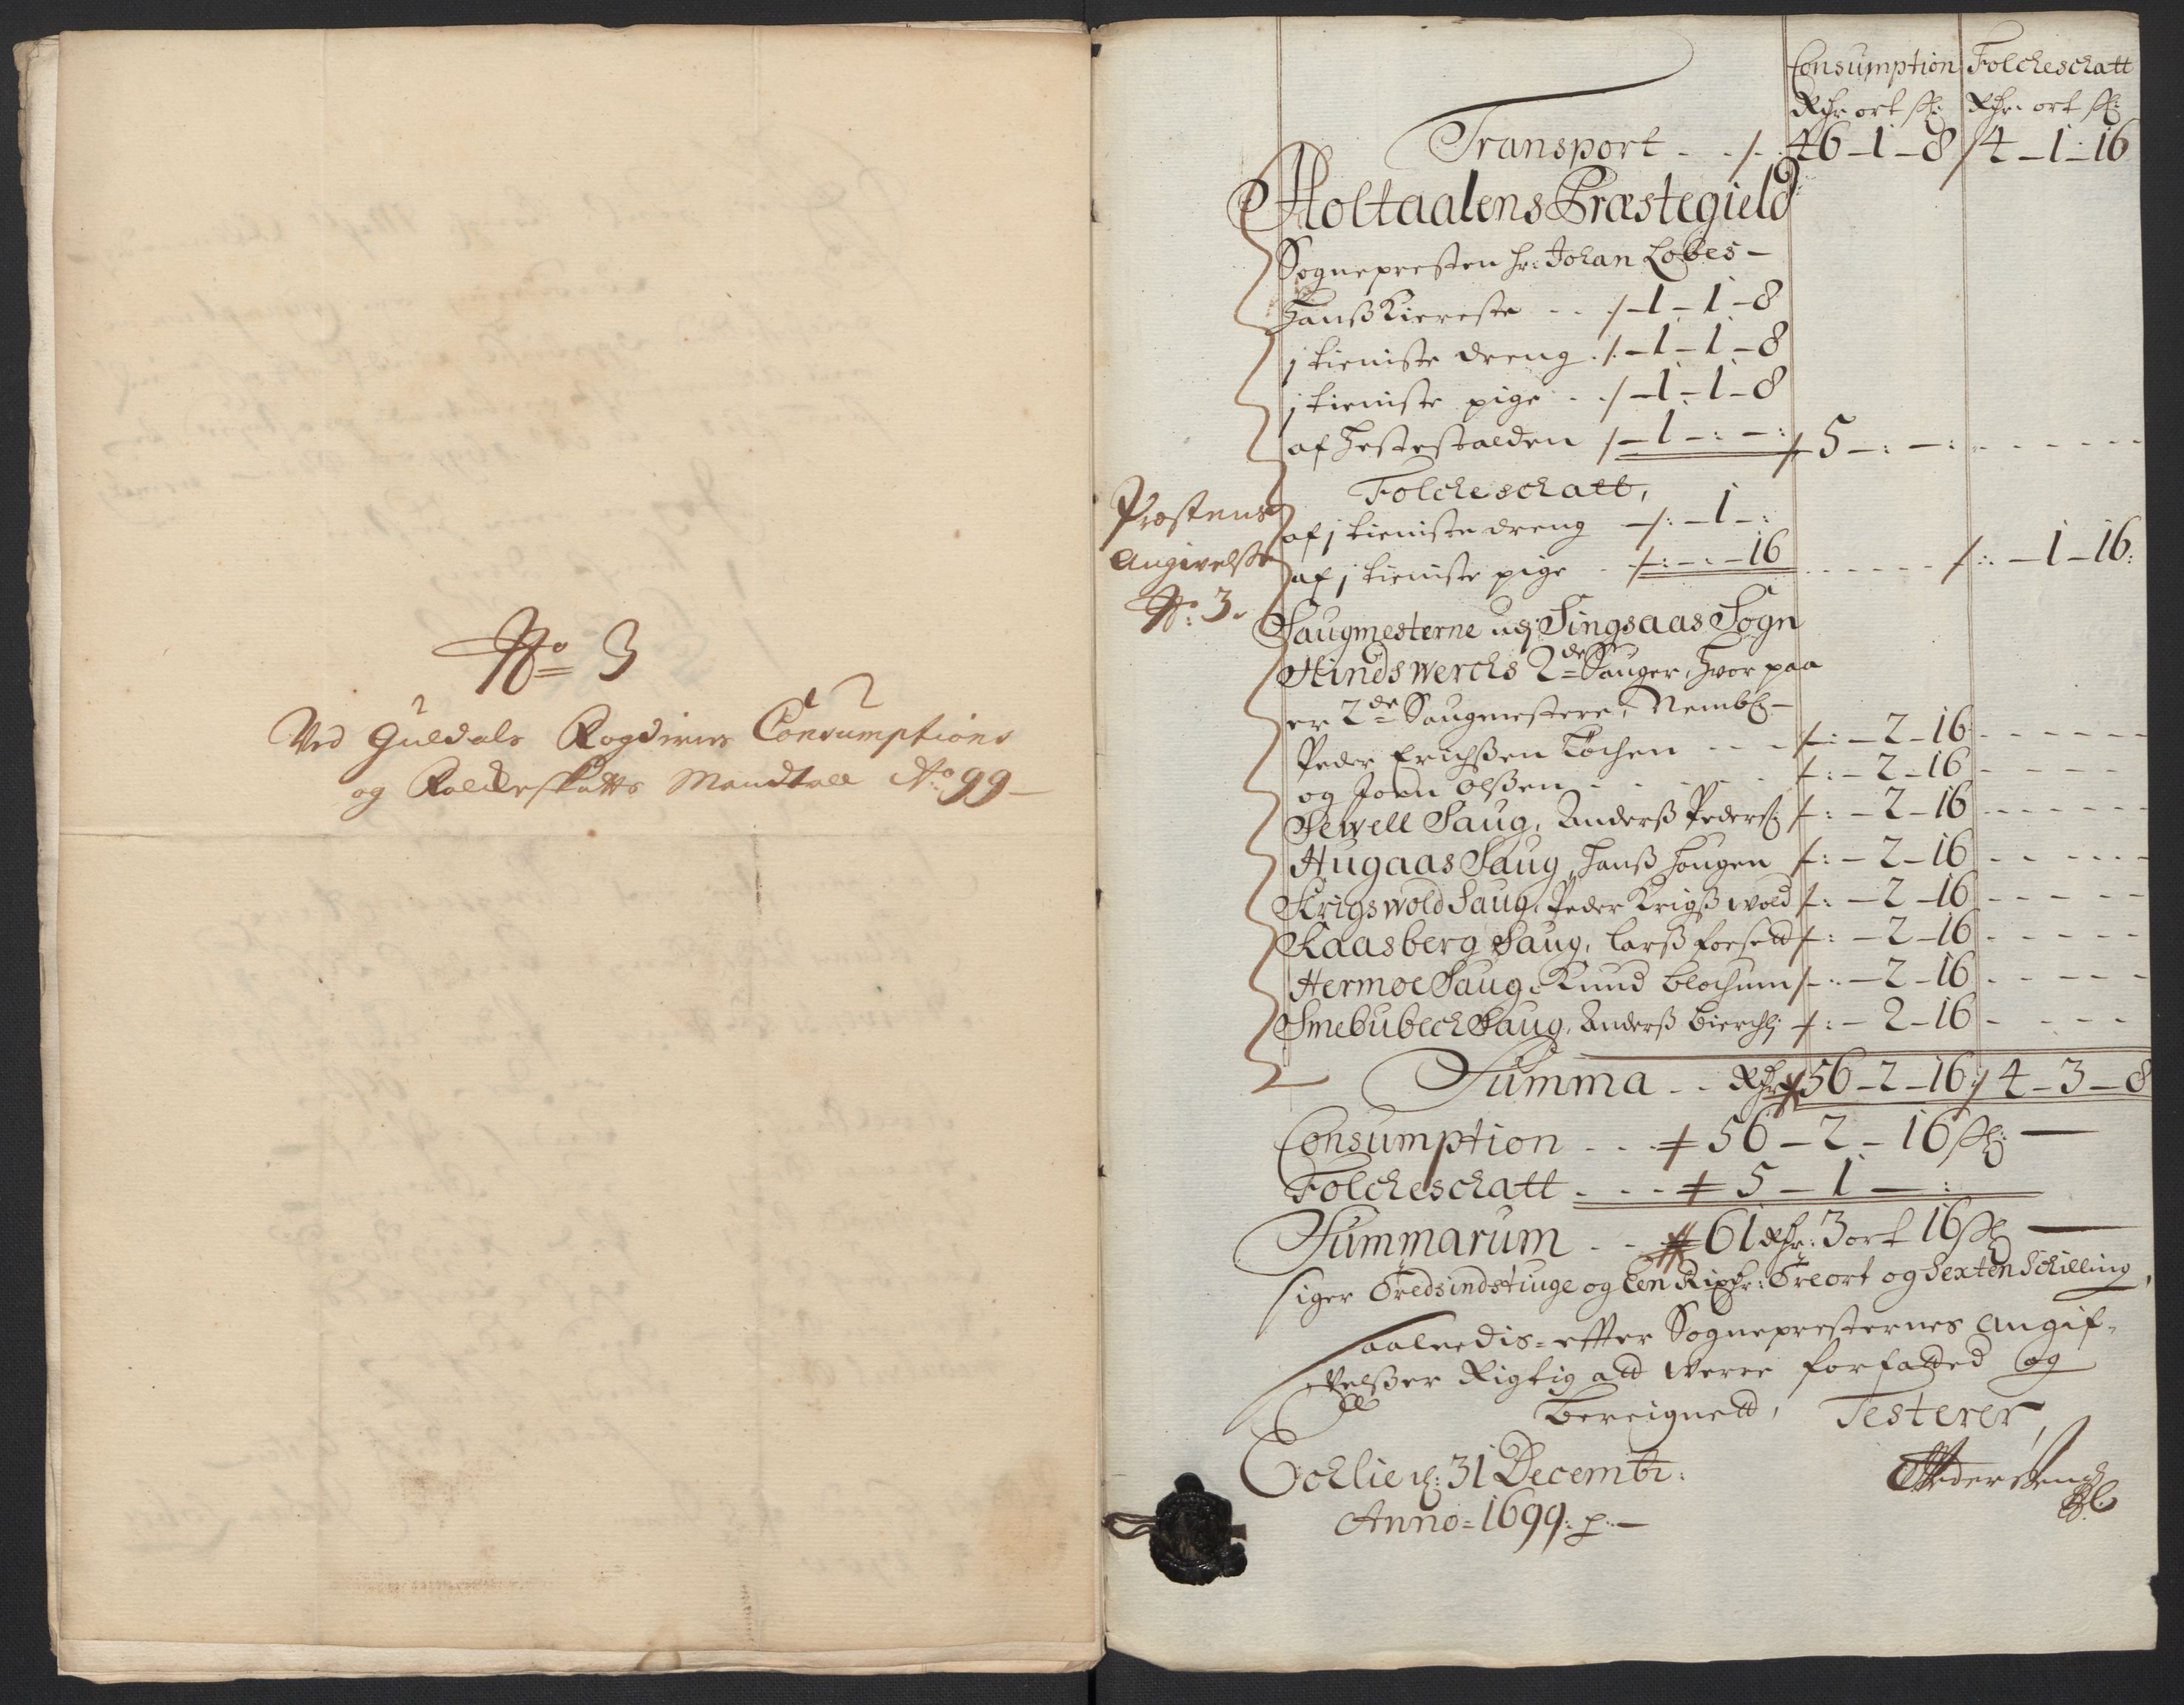 No 3
Ved Guldals Fogderies Consumptions
og Folcke Skatts Mandtall Ao 99 —
Consumption Folcheschatt
Rdr ort sk: Rdr. ort sk:
Transport - - /- 46-1-8 /4-1-16
Holtaalens Præstegield
Sognepresten hr: Johan Lobes -
Hanß Kiereste - - /-1-1-8
j tieniste dreng ./.-1-1-8
j tieniste pige - ./-1-1-8
af Hestestalden /-1-:-: /5-:-:
Folcheschatt,
af j tieniste dreng -/:-1-:
af j tieniste pige - /-:-:-16 /:-1-16:
Præstens
Angivelsse
No: 3.
Saugmesterne udj Singsaas Sogn
Hindswerchs 2de Sauger, hvor paa
er 2de Saugmestere, Nembl: -
Peder Erichßen Løchen - - - /-:-2-16
og Joen Olßen - - - /-:-2-16
Sewell Saug, Anderß Peders: /-:-2-16
Hugaas Saug, Hanß Hougen /-:-2-16
Krigswold Saug, Peder Krigßwold /-:-2-16
Kaasberg Saug, Larß Forsett /-:-2-16
Hermoe Saug, Knud Blochum /-:-2-16
Smebubech Saug, Anderß Bierchlj /-:-2-16
Summa - - Rdr 56-2-16 / 4-3-8
Consumption - - - 56-2-16 sk: —
Folcheschatt - - - 5-1-:
Summarum - - 61 Rdr: 3 ort 16 sk —
siger Tredsindstiuge og Een Rixdr: Treort og Sexten Schilling,
Saaledis efter Sognepresternes Angif-
velßer Rigtig att Were forfatted og
bereignett, Testerer,
Eochlie d: 31 Decembr:
Anno 1699: p: —